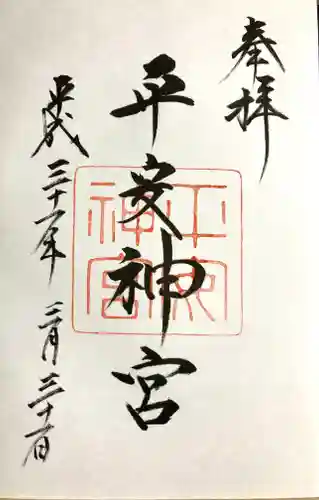 奉拝
平安神宮
平成三十一年三月三十一日
平安
神宮